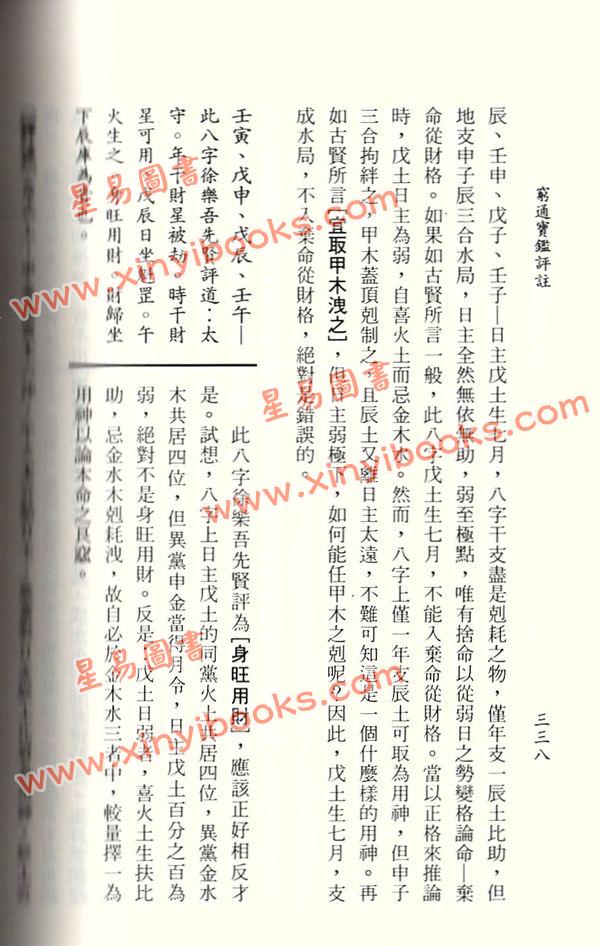 窮通寶鑑評註
三三八
辰、壬申、戊子、壬子—日主戊土生七月,八字干支盡是剋耗之物,僅年支一辰土比助,但
地支申子辰三合水局,日主全然無依無助,弱至極點,唯有捨命以從弱日之勢變格論命—棄
命從財格。如果如古賢所言一般,此八字戊土生七月,不能入棄命從財格。當以正格來推論
時,戊土日主為弱,自喜火土而忌金木水。然而,八字上僅一年支辰土可取為用神,但申子
三合拘絆之,甲木蓋頂剋制之,且辰土又離日主太遠,不難可知這是一個什麼樣的用神。再
如古賢所言【宜取甲木洩之】,但日主弱極,如何能任甲木之剋呢?因此,戊土生七月,支
成水局,不入棄命從財格,絕對是錯誤的。
壬寅、戊申、戊辰、壬午—
此八字徐樂吾先賢評道:太
守。年干財星被劫。時干財
星可用,戊辰日坐魁罡。午
火生之,身旺用財,財歸坐
下辰庫為
此八字徐樂吾先賢評為【身旺用財】,應該正好相反才
是。試想,八字上日主戊土的同黨火土共居四位,異黨金水
木共居四位,但異黨申金當得月令,日主戊土百分之百為
弱,絕對不是身旺用財。反是,戊土日弱者,喜火土生扶比
助,忌金水木剋耗洩,故自必於金木水三者中,較量擇一為
用神以論本命之
星易圖書
www.xinyibooks.com
星易圖書
www.xinyibooks.com
星易圖書
www.xinyibooks.com
星易圖書
www.xinyibooks.com